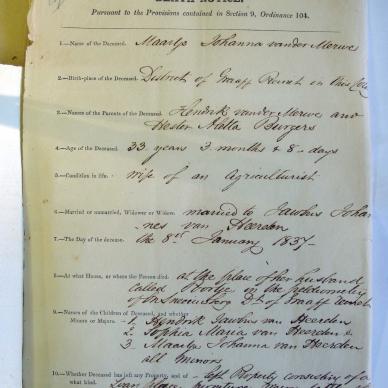 DEATH NOTICE.
Pursuant to the Provisions contained in Section 9, Ordinance 104.
1.—Name of the Deceased. Maartje Johanna van der Merwe
2.—Birth-place of the Deceased. District of Graaff Reinet in this Colony
3.—Names of the Parents of the Deceased. Hendrik van der Merwe and
Hester Burgers
4.—Age of the Deceased. 33 years 3 months & 8 days
5.—Condition in life. wife of an Agriculturist
6.—Married or unmarried, Widower or Widow. married to Johan
nes van Heerden
7.—The Day of the decease. the 8th January 1837
8.—At what House, or where the Person died. at the place of her husband
called in the
of Sneeuwberg Dt. of Graaff Reinet
9.—Names of the Children of Deceased, and whether
Minors or Majors.
1. Hendrik van Heerden
2. Sophia Maria van Heerden &
3. Maartje Johanna van Heerden
all minors
10.—Whether Deceased has left any Property, and of
what kind. left Property consisting of a
Loan Place